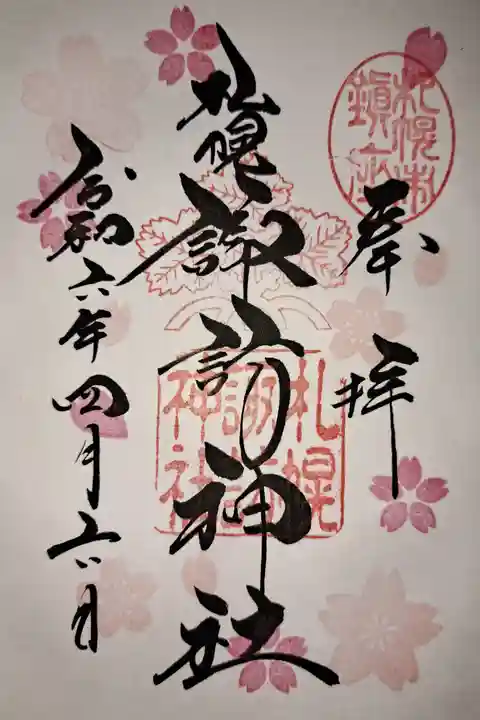 札幌市
鎮座
奉拝
札幌
諏訪神社
札幌
諏訪
神社
令和六年四月六日